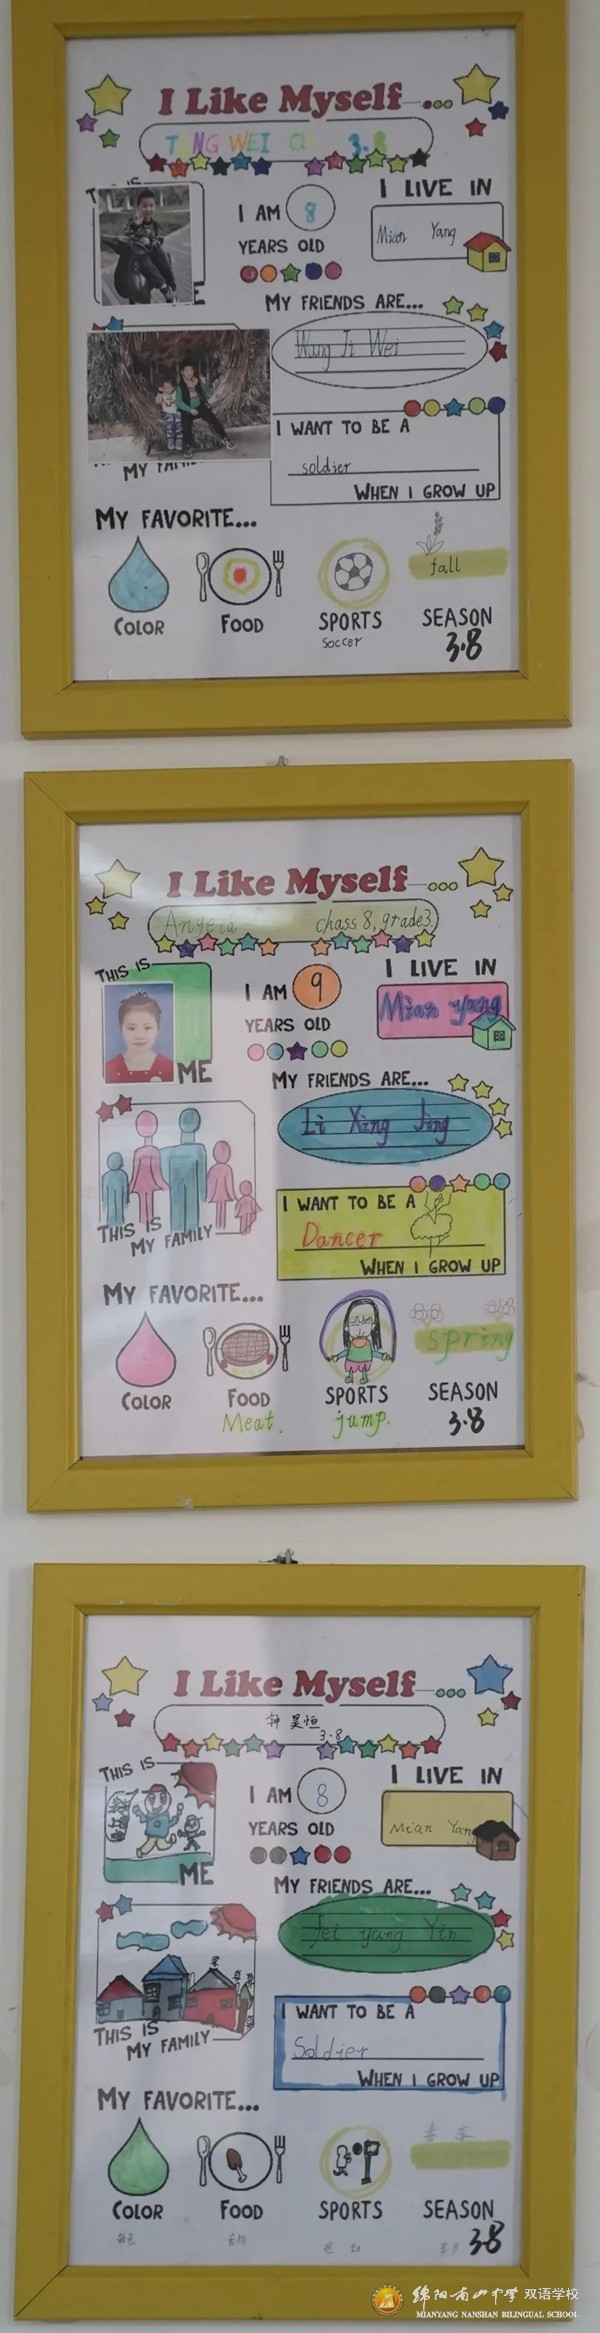 I Like Myself
TANG WEI CI 3.8
THIS IS
I AM 8
YEARS OLD
I LIVE IN
Mian Yang
MY FRIENDS ARE...
Wang Ji Wei
MY FAMILY
I WANT TO BE A
soldier
WHEN I GROW UP
MY FAVORITE...
fall
COLOR FOOD SPORTS SEASON
soccer
3.8
I Like Myself
Angela chass 8, grade3.
THIS IS
ME
I AM 9
YEARS OLD
I LIVE IN
Mian yang
MY FRIENDS ARE...
Li Xing Jing
THIS IS
MY FAMILY
I WANT TO BE A
Dancer
WHEN I GROW UP
MY FAVORITE...
spring
COLOR FOOD SPORTS SEASON
Meat. jump.
3.8
I Like Myself
钟昊恒
3.8
THIS IS
ME
I AM 8
YEARS OLD
I LIVE IN
Mian Yang
MY FRIENDS ARE...
fei yang Yin
THIS IS
MY FAMILY
I WANT TO BE A
Soldier
WHEN I GROW UP
MY FAVORITE...
COLOR FOOD SPORTS SEASON
3.8
绵阳南山中学双语学校
MIANYANG NANSHAN BILINGUAL SCHOOL